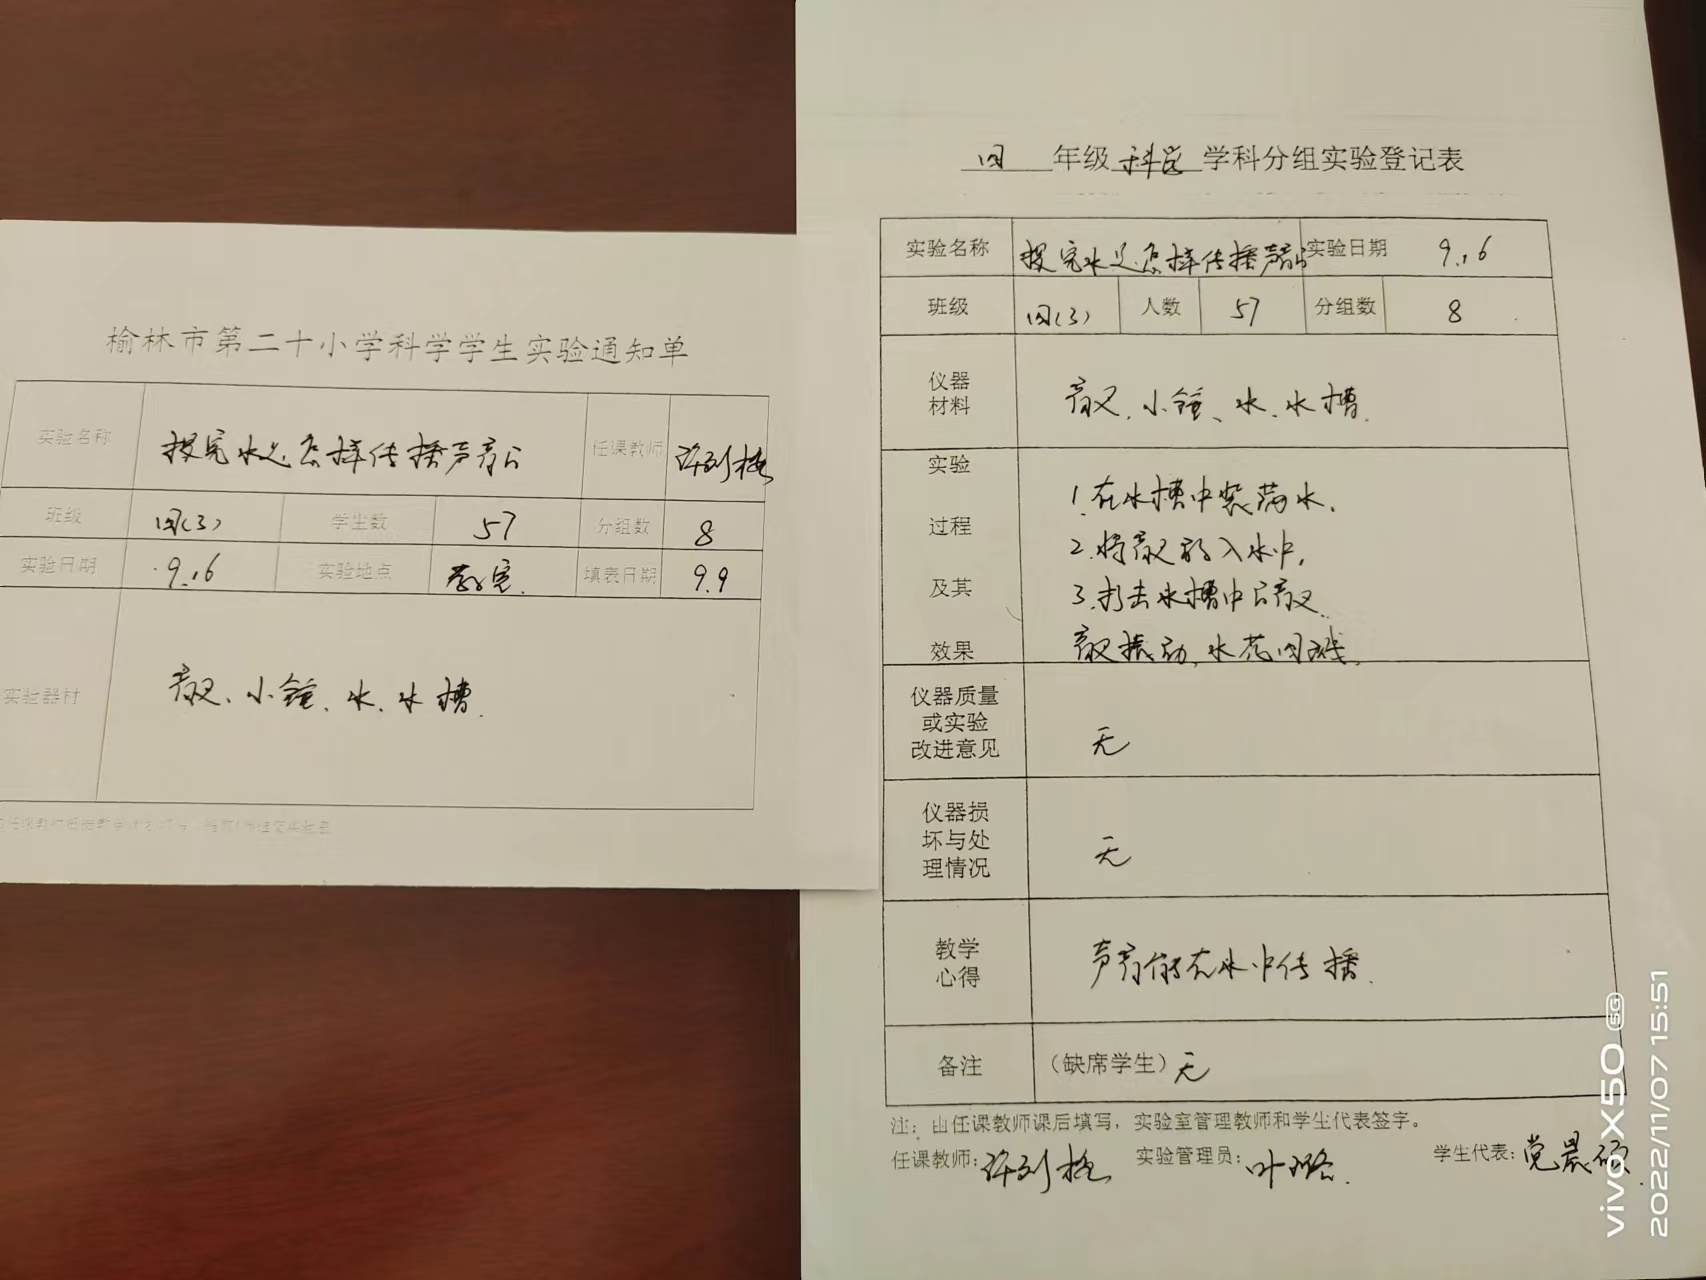 榆林市第二十小学科学学生实验通知单
实验名称 探究水是怎样传播声音的 任课教师
班级 四(3) 学生数 57 分组数 8
实验日期 9.16 实验地点 教室. 填表日期 9.9
实验器材 音叉、小锤、水、水槽.
四 年级 科学 学科分组实验登记表
实验名称 探究水是怎样传播声音的 实验日期 9.16
班级 四(3) 人数 57 分组数 8
仪器
材料
音叉、小锤、水、水槽.
实验
过程
及其
效果
1.在水槽中装满水.
2.将音叉放入水中,
3.打击水槽中的音叉.
音叉振动,水花四溅.
仪器质量
或实验
改进意见
无
仪器损
坏与处
理情况
无
教学
心得
声音能在水中传播.
备注 (缺席学生) 无
注：由任课教师课后填写，实验室管理教师和学生代表签字。
任课教师: 实验管理员: 叶璐. 学生代表: 党晨硕
vivo X50 5G
2022/11/07 15:51